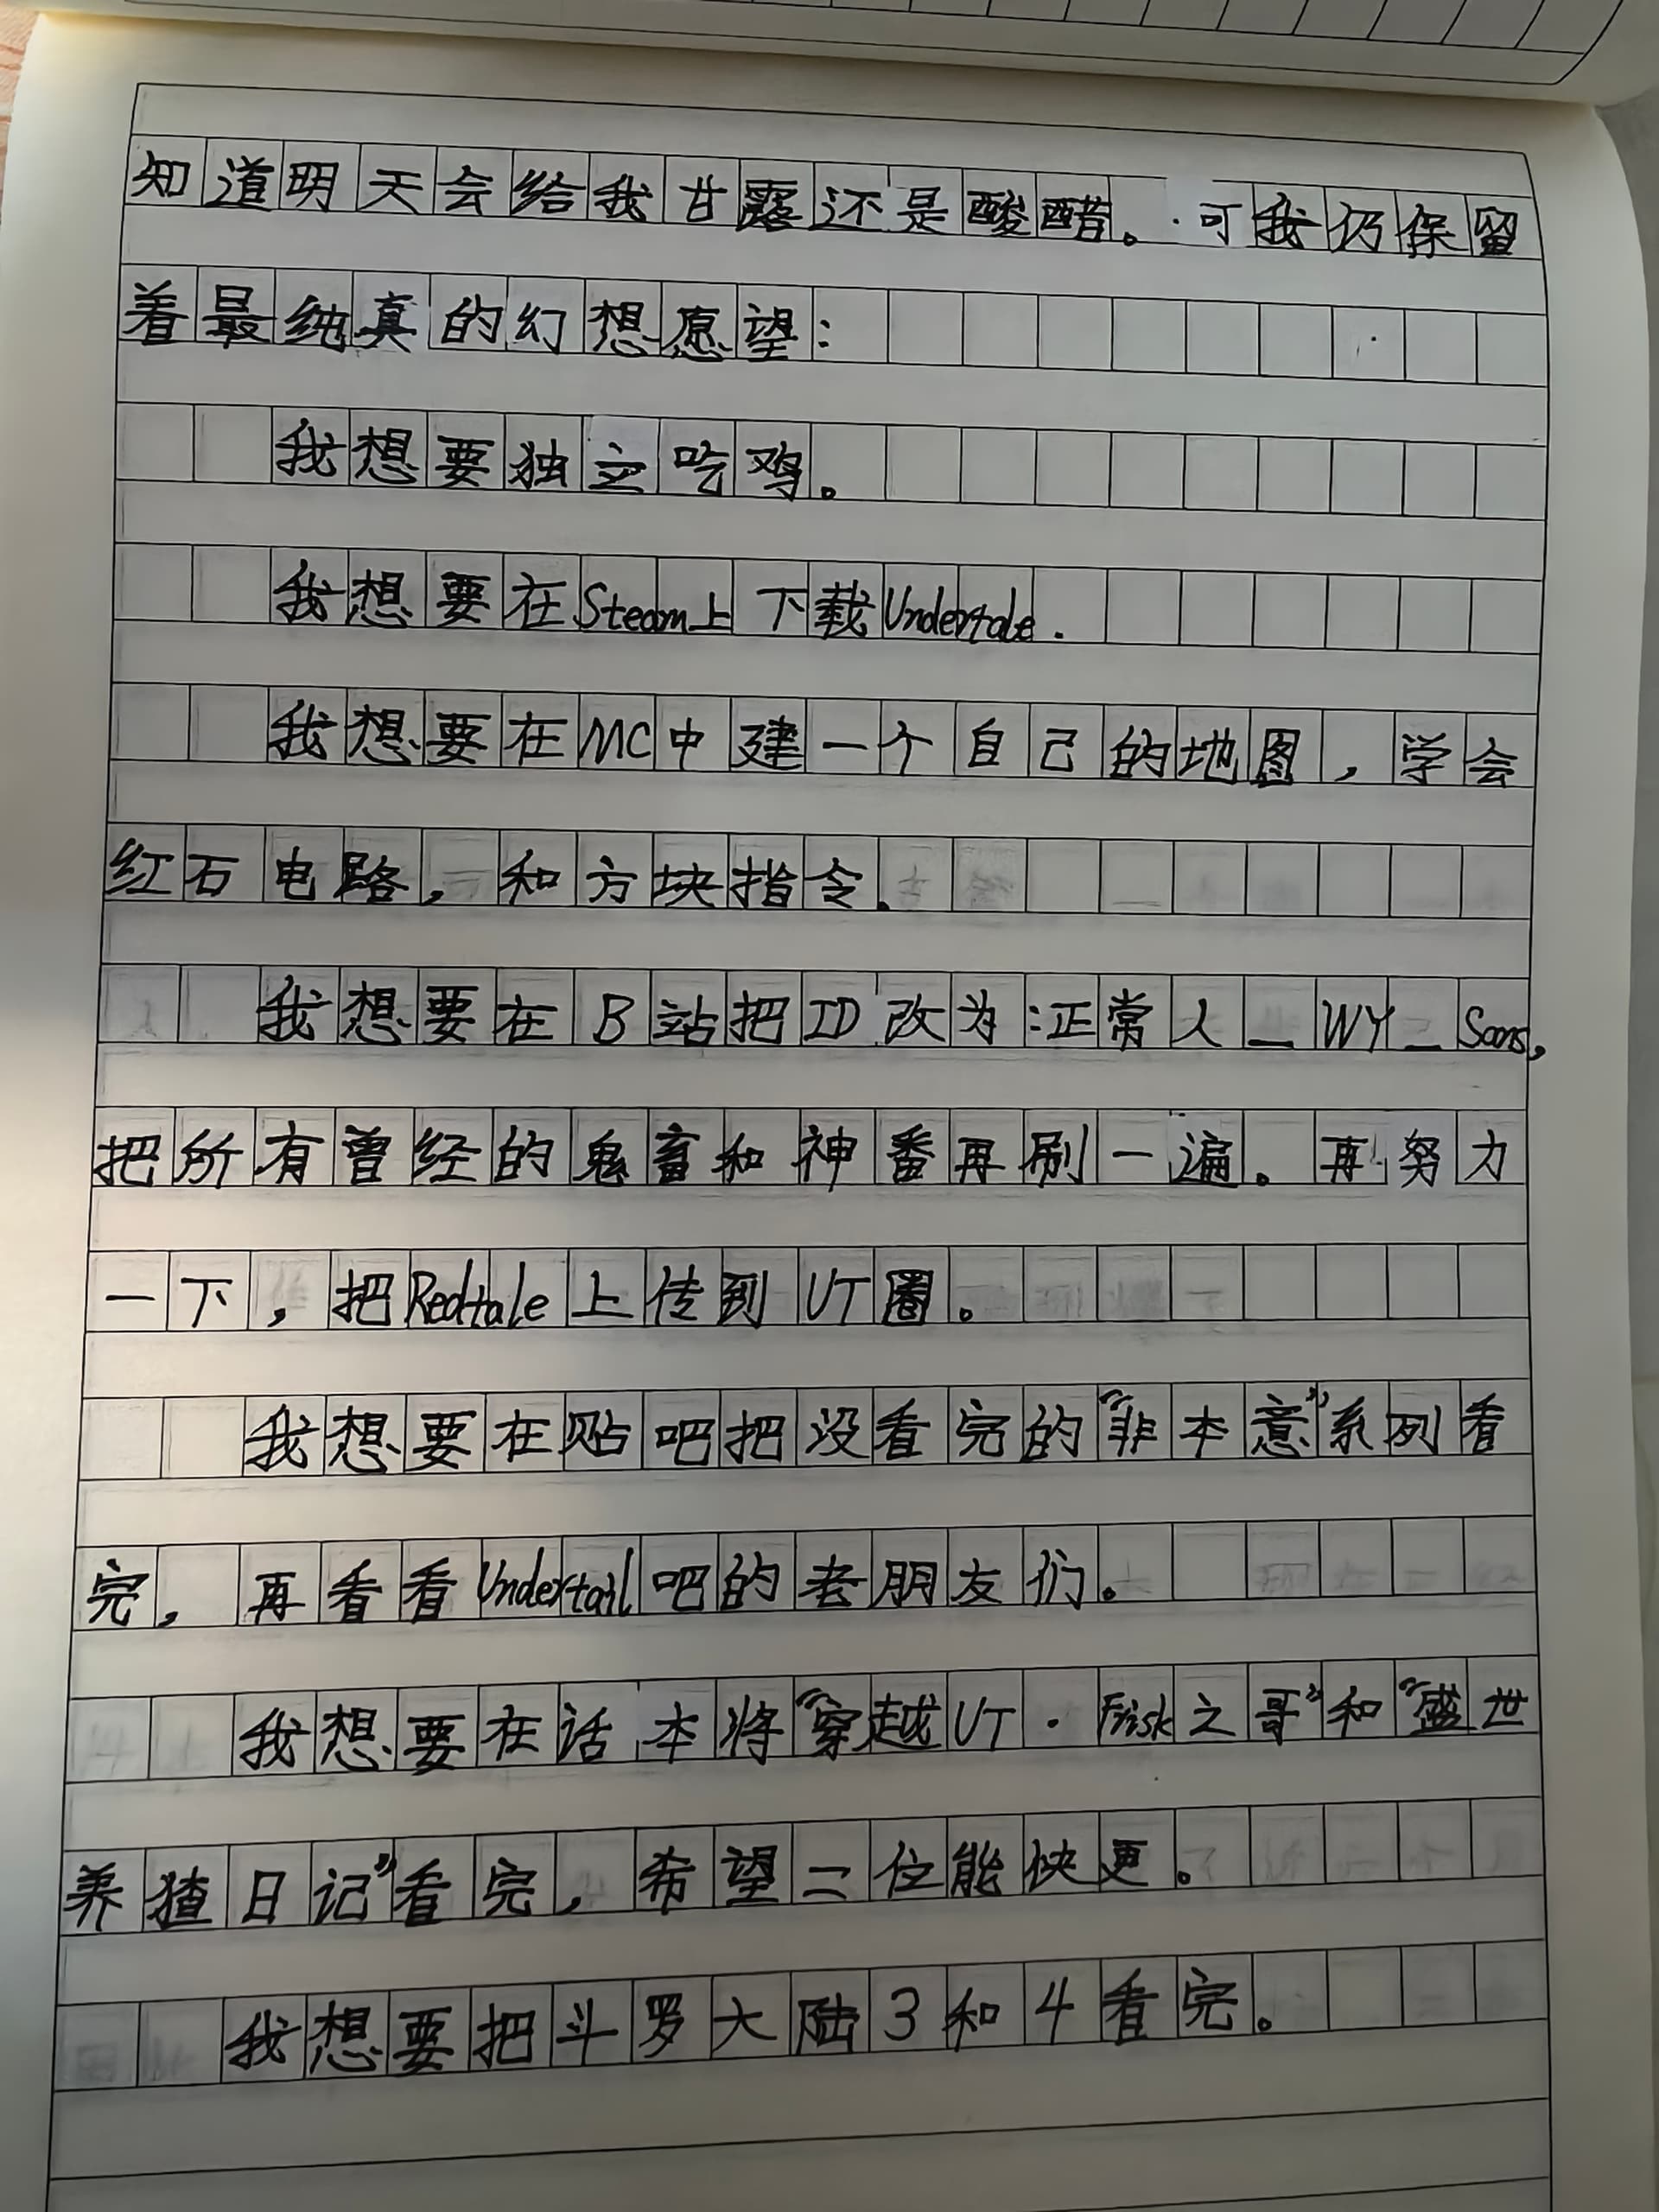 知道明天会给我甘露还是酸醋。可我仍保留
着最纯真的幻想愿望：
我想要独立吃鸡。
我想要在Steam上下载Undertale.
我想要在MC中建一个自己的地图，学会
红石电路，和方块指令.
我想要在B站把ID改为:正常人_WY_Sans,
把所有曾经的鬼畜和神番再刷一遍。再努力
一下，把Redtale上传到UT圈。
我想要在贴吧把没看完的“非本意”系列看
完，再看看Undertail吧的老朋友们。
我想要在话本将“穿越UT·Frisk之哥”和“盛世
养猹日记”看完，希望二位能快更。
我想要把斗罗大陆3和4看完。